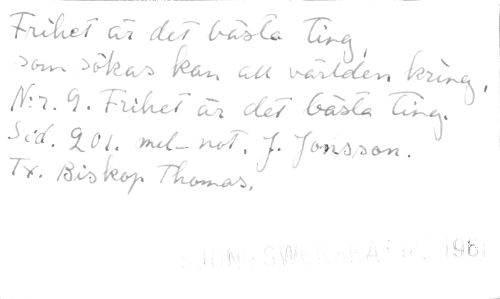 Frihet är det bästa ting,
som sökas kan all världen kring,
N:r. 9. Frihet är det bästa ting.
Sid. 201. mel-not. J. Jonsson.
Tx. Biskop Thomas.
198